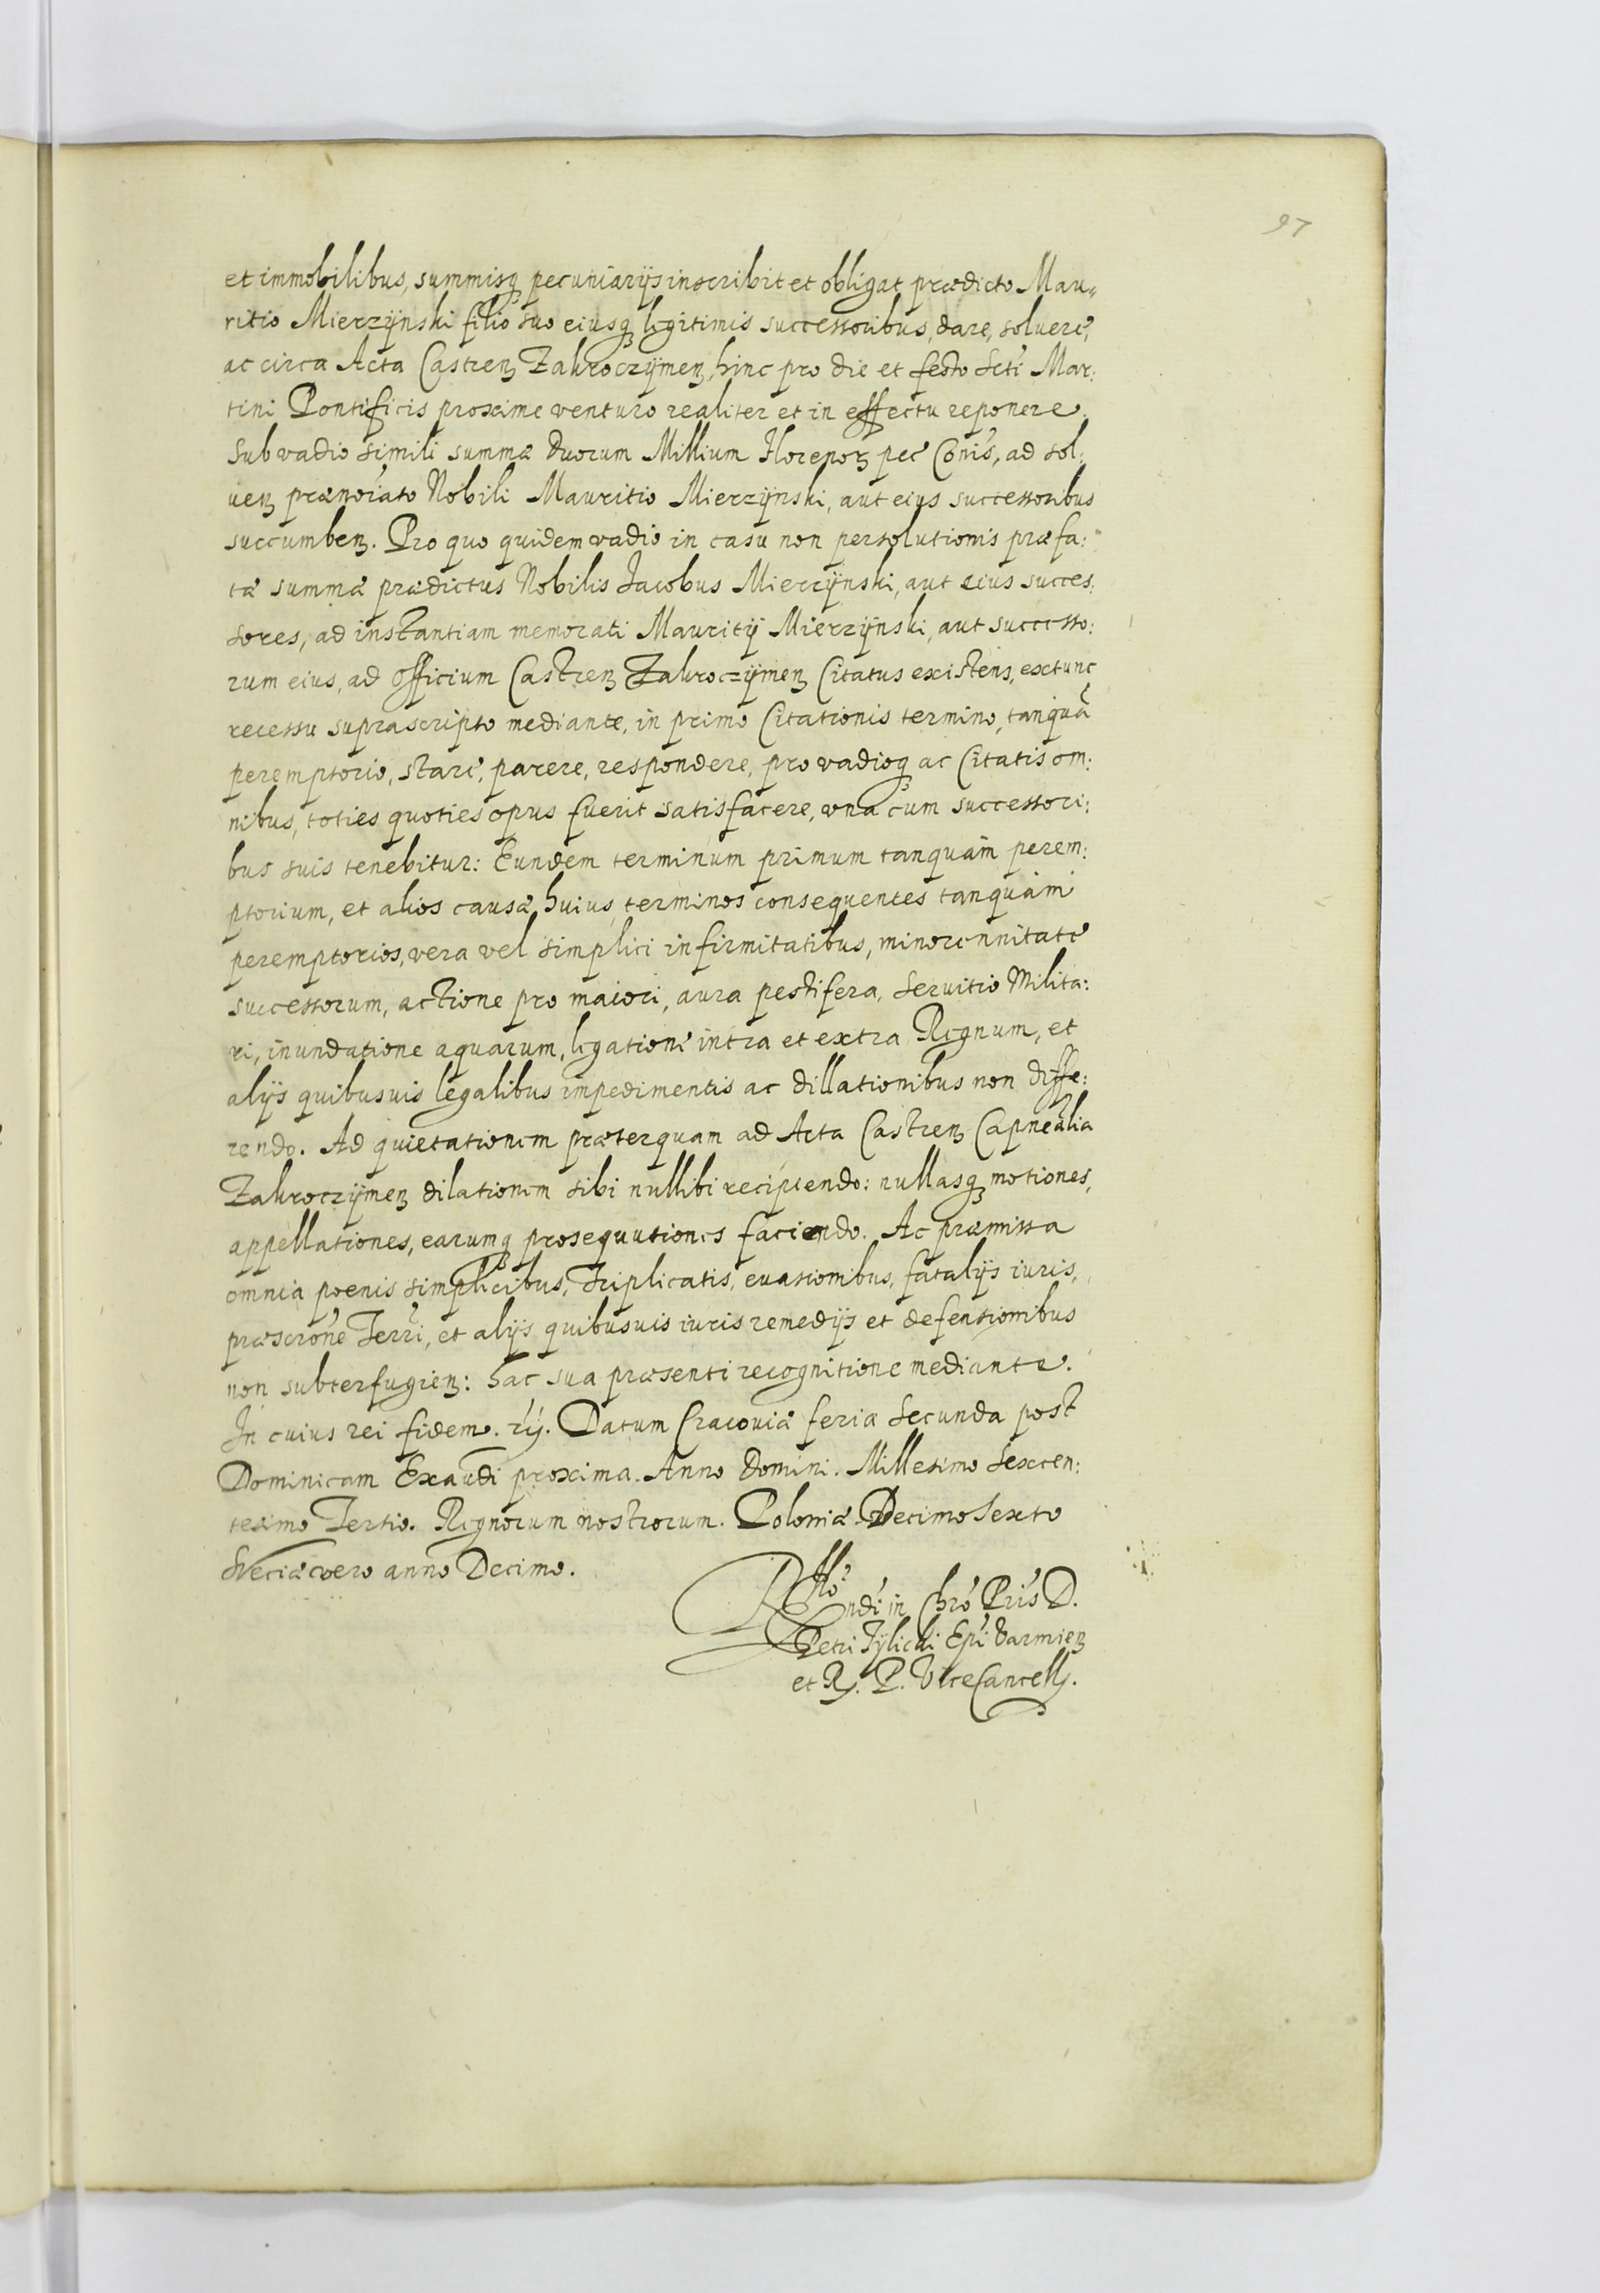 97
et immobilibus, summisq pecuniarijs inscribit et obligat prædicto Mau„
ritio Mierzÿnski filio suo eiusq legitimis successoribus, dare, soluere,
ac circa Acta Castreñ Zakroczÿmeñ, hinc pro die et festo Scti Mar:
tini Pontificis proxime venturo realiter et in effectu reponere.
Sub vadio simili summæ duorum Millium Florenoȝ pec Coñis, ad sol:
ueñ prænoiato Nobili Mauritio Mierzÿnski, aut eius successoribus
succumbeñ. Pro quo quidem vadio in casu non persolutionis præfa:
tæ summæ prædictus Nobilis Jacobus Mierzÿnski, aut eius succes:
sores, ad instantiam memorati Mauritij Mierzÿnski, aut successo:
rum eius, ad officium Castreñ Zakroczÿmeñ Citatus existens, extunc
recessu suprascripto mediante, in primo Citationis termino, tanquã
peremptorio, stare, parere, respondere, pro vadioq ac Citatis om:
nibus, toties quoties opus fuerit satisfacere, vna cum successori:
bus suis tenebitur: Eundem terminum primum tanquam perem:
ptorium, et alios causæ huius terminos consequentes tanquam
peremptorios, vera vel simplici infirmitatibus, minorennitate
successorum, actione pro maiori, aura pestifera, Seruitio Milita:
ri, inundatione aquarum, legatione intra et extra Regnum, et
alijs quibusuis legalibus impedimentis ac dillationibus non diffe:
rendo. Ad quietationem præterquam ad Acta Castreñ Capnealia
Zakroczÿmeñ dilationem sibi nullibi recipiendo: nullasq motiones,
appellationes, earumq prosequutiones faciendo. Ac præmissa
omnia poenis simplicibus, Triplicatis, euasionibus, fatalijs iuris,
præscrõne Terri, et alijs quibusuis iuris remedijs et defensionibus
non subterfugieñ: hac sua præsenti recognitione mediante.
In cuius rei fidem. rÿ. Datum Cracouiæ feria Secunda post
Dominicam Exaudi proxima. Anno Domini. Millesimo Sexcen:
tesimo Tertio. Regnorum nostrorum. Poloniæ Decimo Sexto
Sveciæ vero anno Decimo.
Rllo
ndi in Chro Pris D.
Petri Tÿlicki Epi Varmieñ
et R. P. ViceCancell.